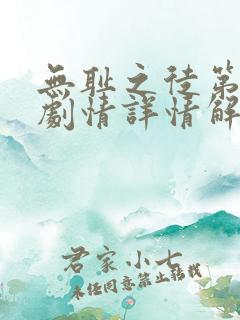 無耻之徒第
劇情詳情解
君家小七
未经同意禁止转载